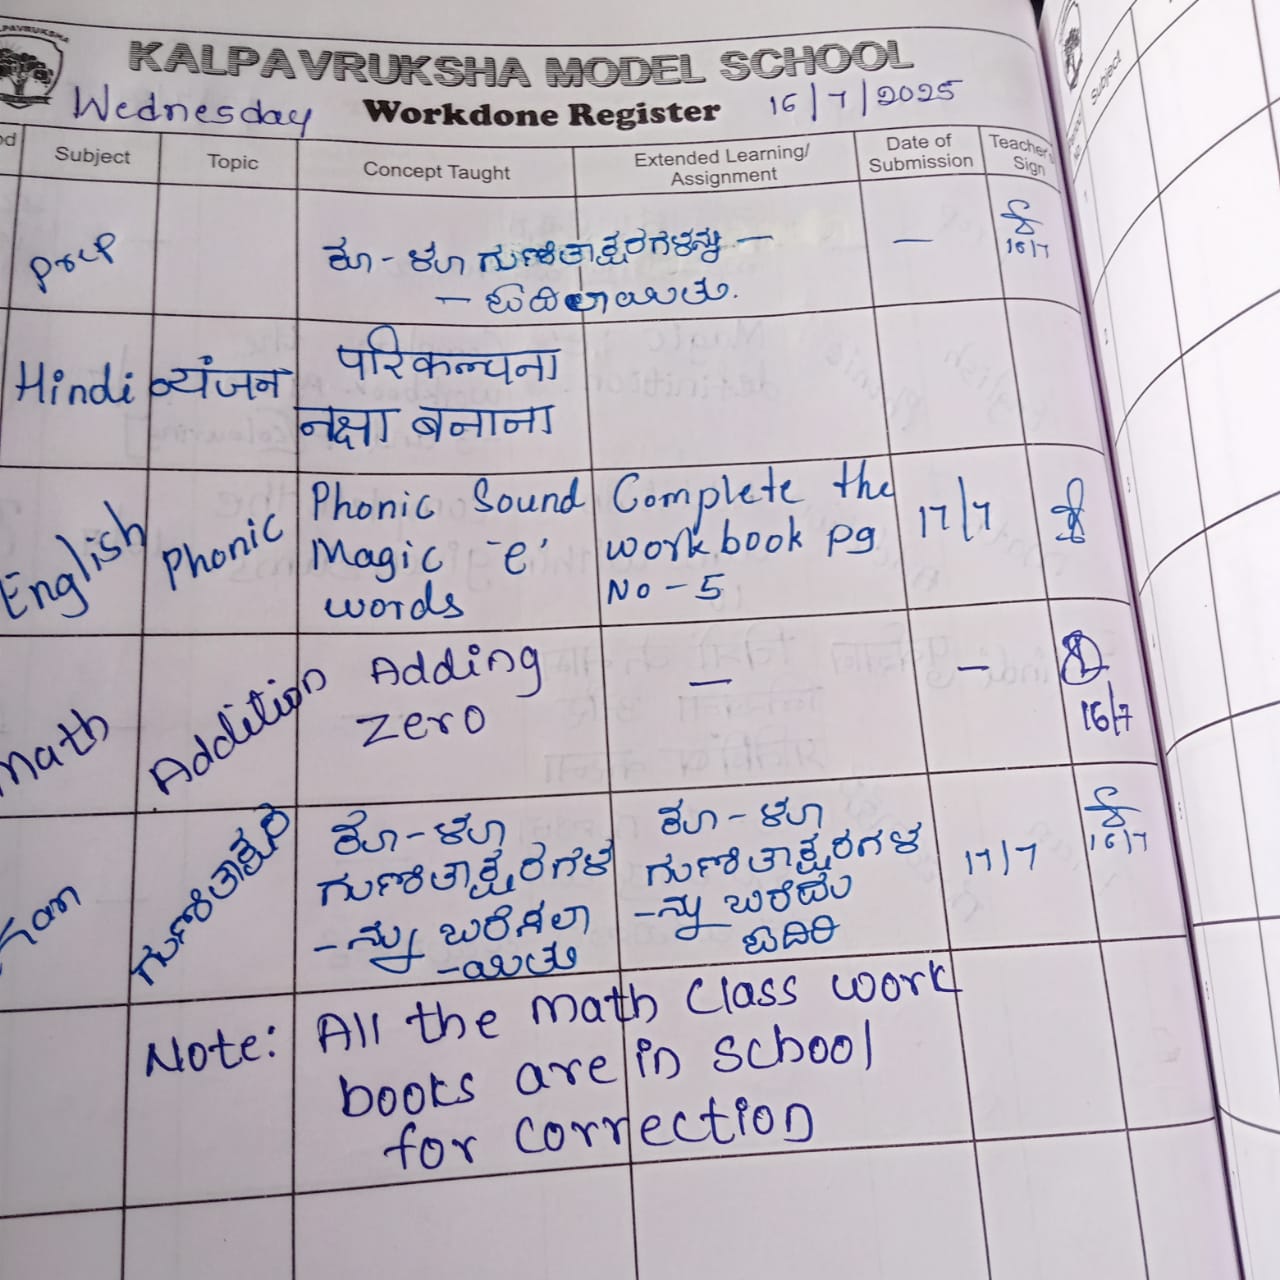 KALPAVRUKSHA MODEL SCHOOL
Wednesday Workdone Register 16/7/2025
Subject Topic Concept Taught Extended Learning/ Assignment Date of Submission Teacher's Sign
prep
ಕೂ - ಳೂ ಗುಣಿತಾಕ್ಷರಗಳನ್ನು –
– ಓದಿಲಾಯಿತು.
—
16/7
Hindi व्यंजन
परिकल्पना
नक्षा बनाना
English Phonic
Phonic Sound
Magic 'e'
words
Complete the
work book pg
No - 5
17/7
Math Addition
Adding
zero
—
—
16/7
Kan ಗುಣಿತಾಕ್ಷರ
ಕೂ - ಳೂ
ಗುಣಿತಾಕ್ಷರಗಳ
- ನ್ನು ಬರೆಸಲಾ
- ಯಿತು
ಕೂ - ಳೂ
ಗುಣಿತಾಕ್ಷರಗಳ
- ನ್ನು ಬರೆದು
ಓದಿರಿ
17/7
16/7
Note: All the math class work
books are in school
for correction